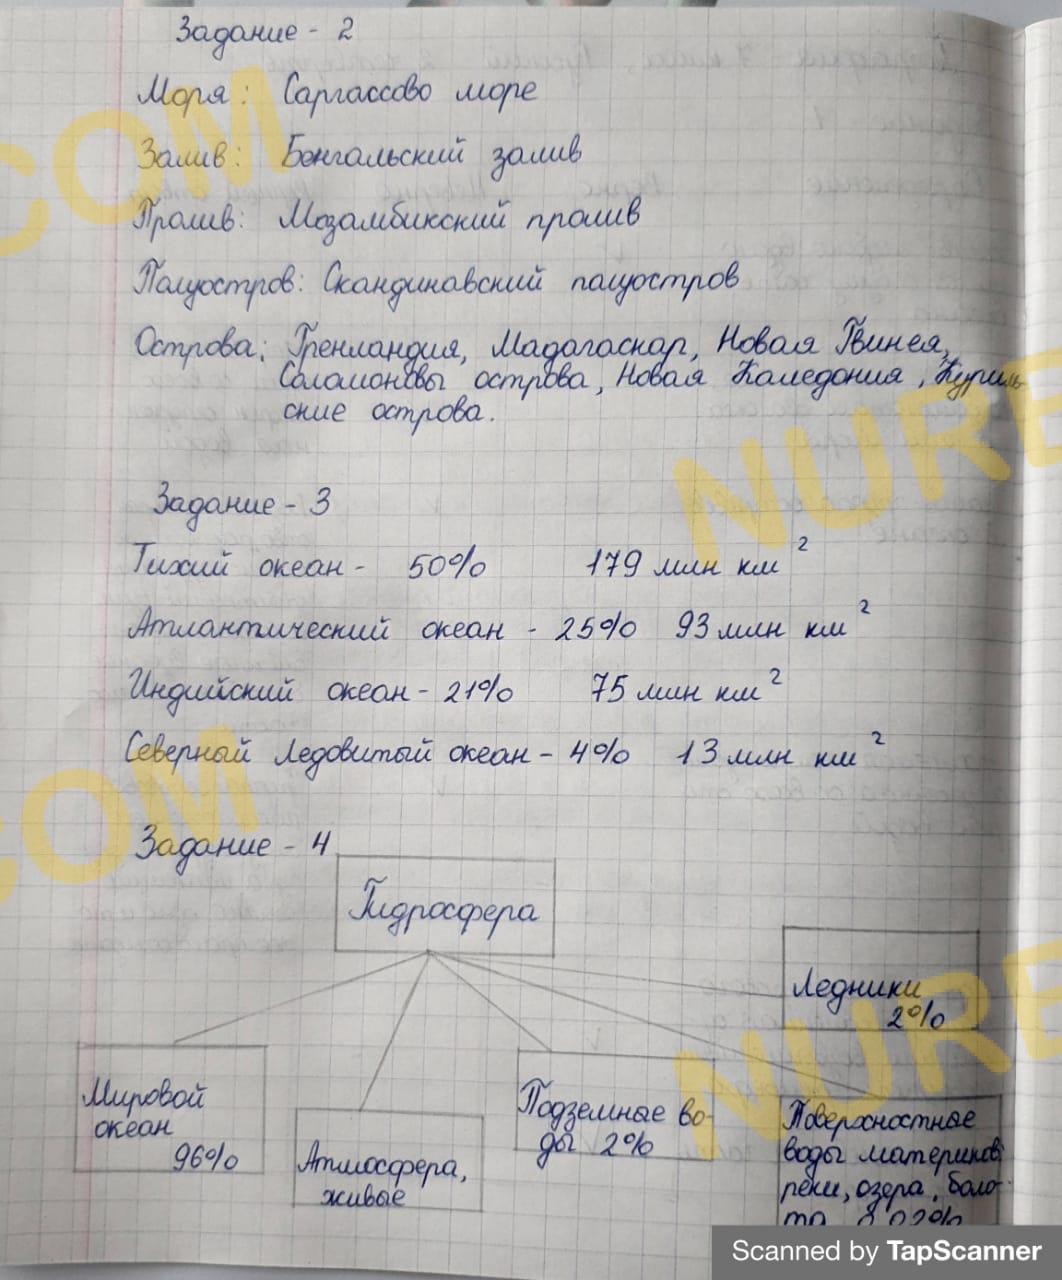 Задание - 2
Моря: Саргассово море
Залив: Бенгальский залив
Пролив: Мозамбикский пролив
Полуостров: Скандинавский полуостров
Острова: Гренландия, Мадагаскар, Новая Гвинея,
Соломоновы острова, Новая Каледония, Куриль-
ские острова.
Задание - 3
Тихий океан - 50% 179 млн км²
Атлантический океан - 25% 93 млн км²
Индийский океан - 21% 75 млн км²
Северный Ледовитый океан - 4% 13 млн км²
Задание - 4
Гидросфера
Ледники
2%
Мировой
океан
96%
Атмосфера,
живые
Подземные во-
ды 2%
Поверхностные
воды материков:
реки, озера, боло-
та 0,02%
COM
NURE
COM
NURE
Scanned by TapScanner